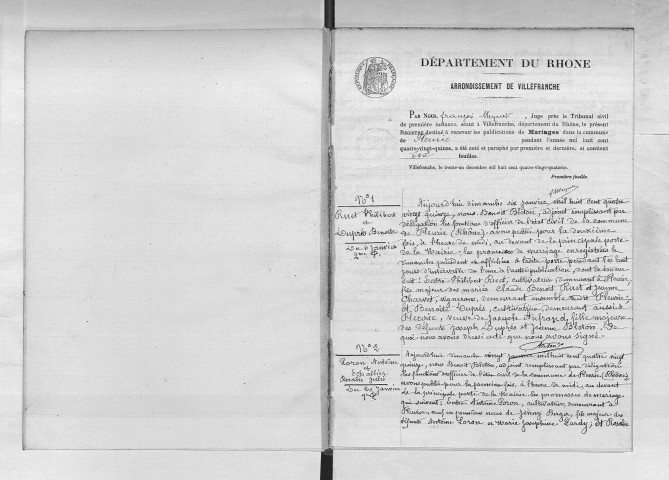 DÉPARTEMENT DU RHONE
ARRONDISSEMENT DE VILLEFRANCHE
PAR NOUS, françois , Juge près le Tribunal civil
de première instance, séant à Villefranche, département du Rhône, le présent
REGISTRE destiné à recevoir les publications de Mariages dans la commune
de Fleurie pendant l'année mil huit cent
quatre-vingt-quinze, a été coté et paraphé par première et dernière, et contient
dix feuilles.
Villefranche, le trente-un décembre mil huit cent quatre-vingt-quatorze.
Première feuille.
N° 1
Philibert
et
Duprès Benoîte
Du 6 Janvier
2me P.
Aujourd'hui dimanche six janvier, mil huit cent quatre
vingt quinze, nous Benoît Bloton, adjoint remplissant par
délégation les fonctions d'officier de l'état civil de la commune
de Fleurie (Rhône), avons publié pour la deuxième
fois, à l'heure de midi, au devant de la principale porte
de la Mairie, les promesses de mariage enregistrées le
dimanche précédent et affichées à ladite porte pendant les huit
jours d'intervalle de l'une à l'autre publication, dont la teneur
suit: Entre Philibert, cultivateur, demeurant à Fleurie,
fils majeur des mariés Claude Benoît et Jeanne
Charvet, vignerons, demeurant ensemble Fleurie;
et Benoîte Duprès, cultivatrice, demeurant aussi à
Fleurie, veuve de Joseph Aufrand, fille majeure
des défunts Joseph Duprès et Jeanne Bloton. De
quoi nous avons dressé acte que nous avons signé.
N° 2
Loron Antoine
et
Rosalie
Du 20 Janvier
1re P.
Aujourd'hui dimanche vingt janvier mil huit cent quatre vingt
quinze, nous Benoît Bloton, adjoint remplissant par délégation
les fonctions d'officier de l'état civil de la commune de Fleurie (Rhône)
avons publié pour la première fois, à l'heure de midi, au devant
de la principale porte de la Mairie les promesses de mariage
qui suivent: Entre Antoine Loron, cultivateur, demeurant à
veuf en premières noces de Jenny Berger, fils majeur des
défunts Antoine Loron et Marie Josephine Lardy; et Rosalie